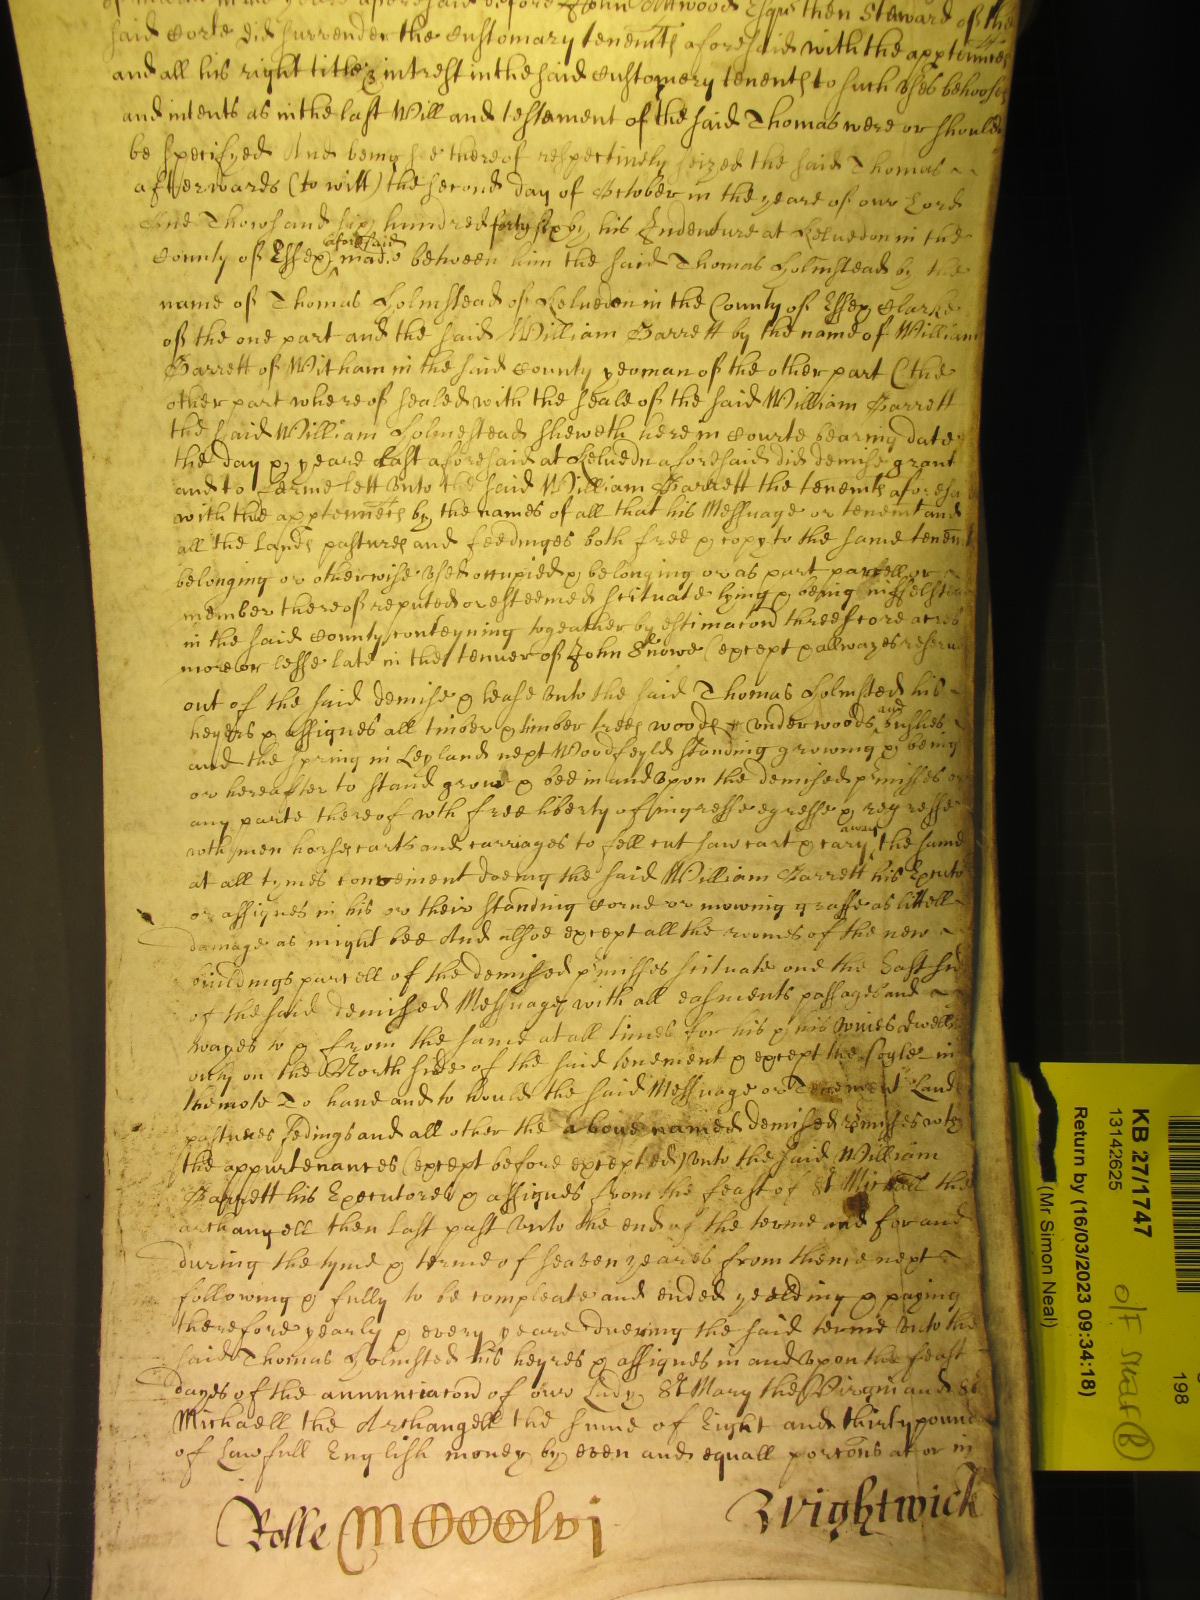 said Corte did surrender the Customary tenemts aforesaid with the apptennces
and all his right title & intrest in the said Customery tenemts to such uses behoofes
and intents as in the last Will and testement of the said Thomas were or should
be specifyed And being soe thereof respectively seized the said Thomas
afterwards (to witt) the second day of October in the yeare of our Lord
One Thowsand six hundred forty six by his Indenture at Kelvedon in the
County of Essex aforesaid made between him the said Thomas Holmstead by the
name of Thomas Holmstead of Kelvedon in the County of Essex Clarke
of the one part and the said William Garrett by the name of William
Garrett of Witham in the said County yeoman of the other part (the
other part whereof sealed with the seale of the said William Garrett
the said William Holmestead sheweth here in Courte bearing date
the day & yeare last aforesaid at Kelvedn aforesaid did demise grant
and to ferme lett unto the said William Garrett the tenemts aforesa
with the apptennces by the names of all that his Messuage or tenemt and
all the Lands pastures and feedinges both free & copy to the same tenemt
belonging or otherwise used occupied & belonging or as part parcell or
member thereof reputed or esteemed scituate lying & being in
in the said County conteyning togeather by estimacon threescore acres
more or lesse late in the tenuer of John Snowe (except & allwayes reserv
out of the said demise & lease unto the said Thomas Holmsted his
heyers & assignes all timber & timber trees woods & underwoods and bushes
and the spring in Leyland next Woodfeyld standing growing & being
or hereafter to stand grow & bee in and upon the demised prmisses or
any parte thereof wth free liberty of ingresse egresse & regresse
wth men horses carts and carriages to fell cut saw cart & cary away the same
at all tymes convenient doeing the said William Garrett his Executo
or assignes in his or their standing Corne or mowing grasse as littell
damage as might bee And alsoe except all the roomes of the new
buildings parcell of the demised prmisses scituate one the East side
of the said demised Messuage with all easments passages and
wayes to & from the same at all times for his & his wives dwelli
only on the North side of the said tenement & except the in
the mote To have and to hould the said Messuage or Tenement Land
pastures fedings and all other the above named demised prmisses wth
the appurtenances (except before excepted) unto the said William
Garrett his Executores & assignes from the feast of St Michall the
archangell then last past unto the end of the terme and for and
during the tyme & terme of seaven yeares from thence next
following & fully to be compleate and ended yeelding & paying
therefore yearly & every yeare dureing the said terme unto the
said Thomas Holmsted his heyres & assignes in and upon the feast
dayes of the annunciacon of our Lady St Mary the Virgin and St
Michaell the Archangell the sume of Eight and thirty pound
of Lawfull English money by even and equall porcons at or in
Rolle MDCCClvj Brightwick
KB 27/1747
13142625
O/F
Return by (16/03/2023 09:34:18)
(Mr Simon Neal)
198